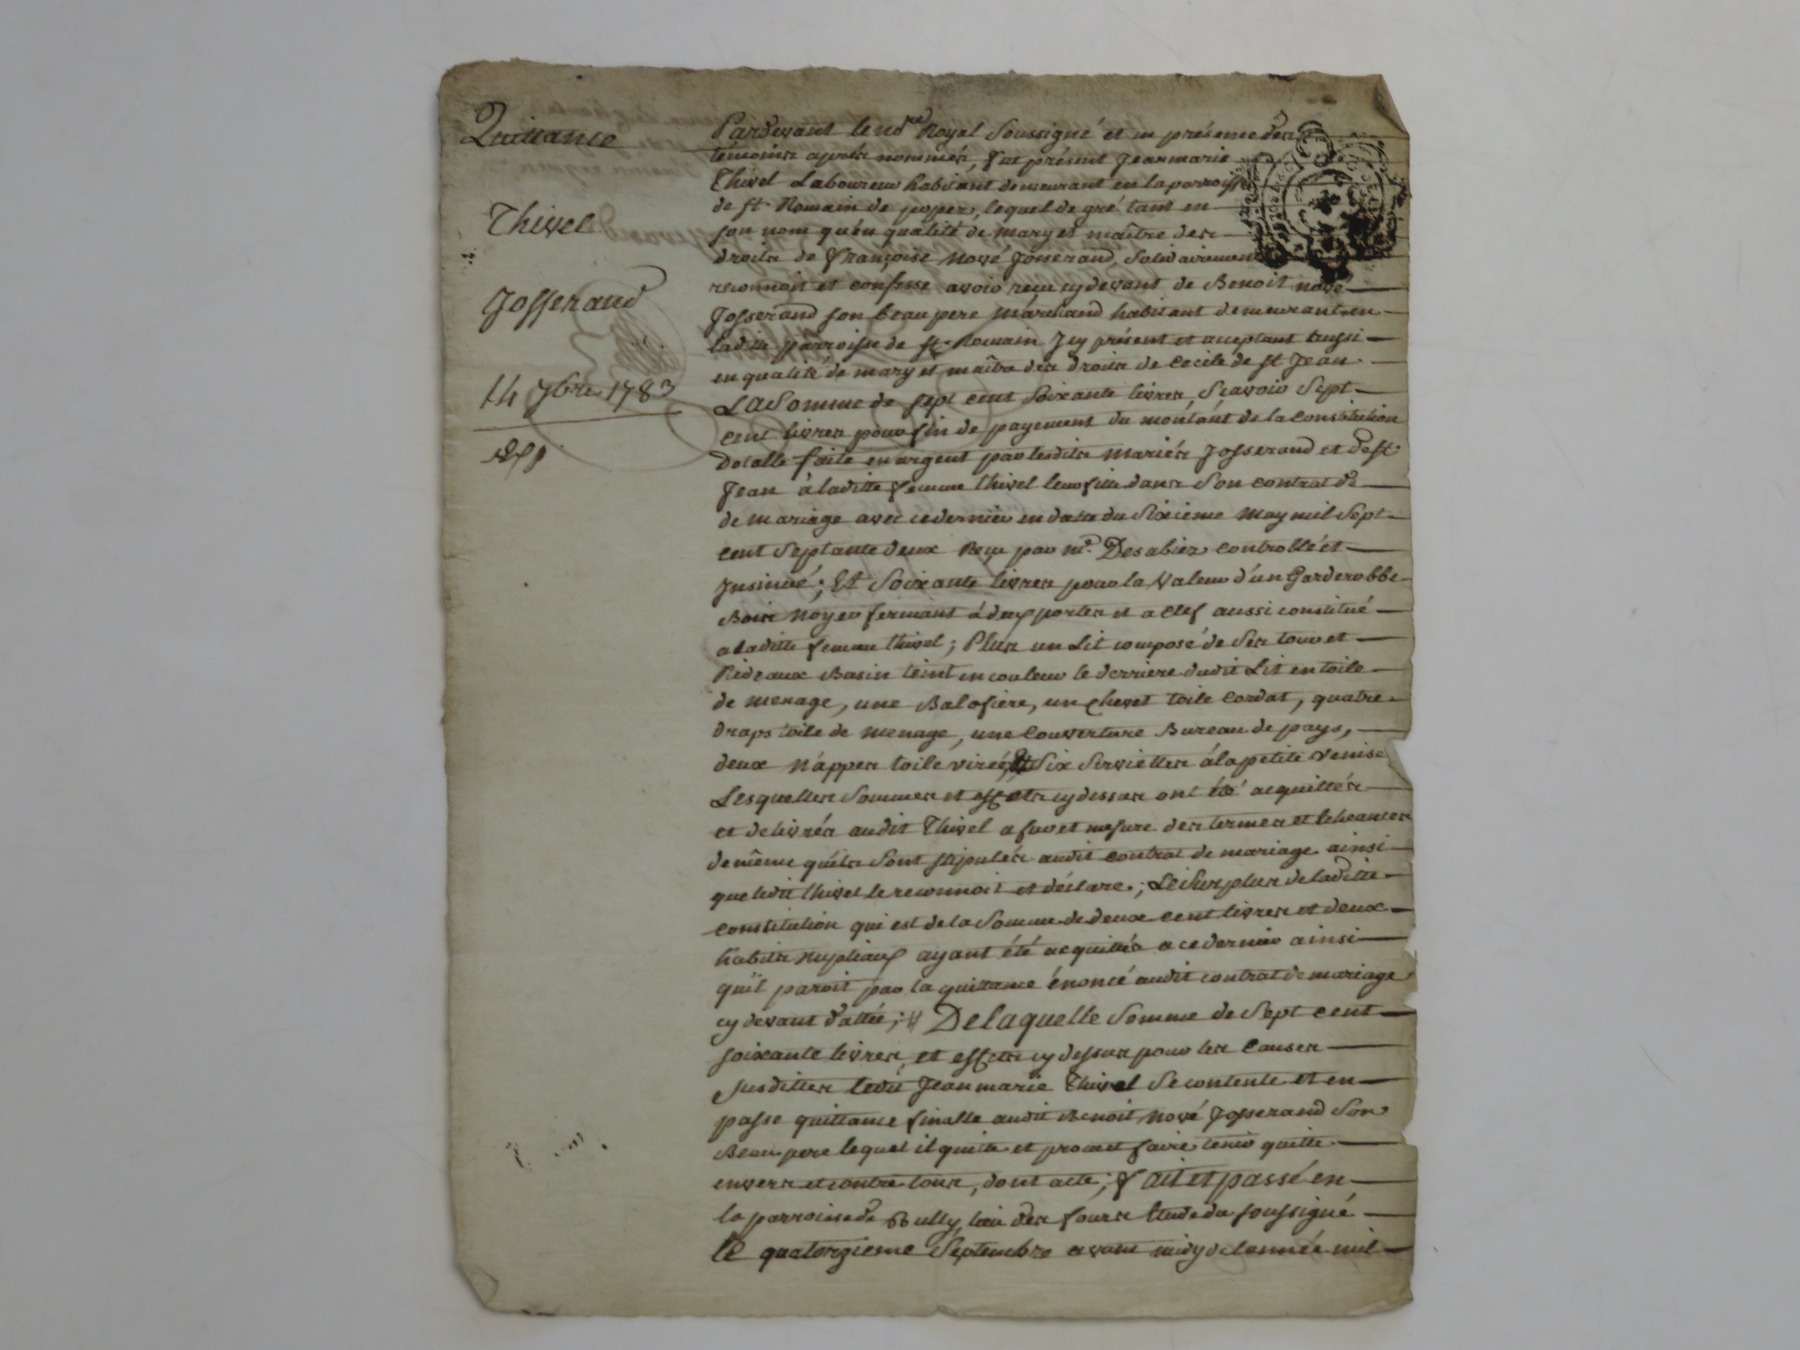 Quittance
Thivel
Josserand
14 7bre 1783
Exp
Pardevant le nore Royal Soussigné et en présence des
témoins après nommés, fut présent Jeanmarie
Thivel Laboureur habitant demeurant en la parroisse
de st Romain de popez, lequel de gré tant en
son nom qu'en qualité de mary et maître des
droits de françoise Nové Josserand, Solidairement
reconnoit et confesse avoir reçu cy devant de Benoit nové
Josserand son beau pere Marchand habitant demeurant en
ladite parroisse de st Romain Icy présent et acceptant aussi
en qualité de mary et maître des droits de Cecile de st Jean
La Somme de sept cent Soixante livres, Scavoir Sept
cent livres pour fin de payement du montant de la Constitution
Dotalle faite en argent par lesdits Mariés Josserand et de st
Jean à laditte femme thivel leur fille dans Son contrat de
de mariage avec ce dernier en datte du Sixieme May mil Sept
cent Septante deux Reçu par me Desabiez controllé et
Insinué; Et Soixante livres pour la valeur d'un Garderobbe
Bois Noyer fermant à deux portes et a clef aussi constitué
a laditte femme thivel; Plus un Lit composé de Ses tour et
Rideaux Basin teint en couleur le derriere dudit Lit en toile
de menage, une Balosiere, un chevet toile Cordat, quatre
draps toile de menage, une Couverture Bureau de pays,
deux nappes toile virée, Et Six Serviettes à la petite Venise
Lesquelles Sommes et effets cy dessus ont été acquittés
et delivrés audit Thivel a fur et mesure des termes et echeances
de même qu'ils Sont stipulés audit contrat de mariage ainsi
que ledit thivel le reconnoit et déclare; Le Surplus de laditte
constitution qui est de la Somme de deux cent livres et deux
habits Nuptiaux ayant été acquittés a ce dernier ainsi
qu'il paroit par la quittance énoncé audit contrat de mariage
cy devant datté; // De laquelle Somme de Sept cent
soixante livres, et effets cy dessus pour les Causes
Susdittes ledit Jeanmarie Thivel Se contente et en
passe quittance finalle audit Benoit Nové Josserand Son
Beau pere lequel il quitte et promet faire tenir quitte
envers et contre tous, dont acte; fait et passé en
la parroisse de Bully, lieu des fours Etude du soussigné
le quatorzieme Septembre avant midy de l'année mil